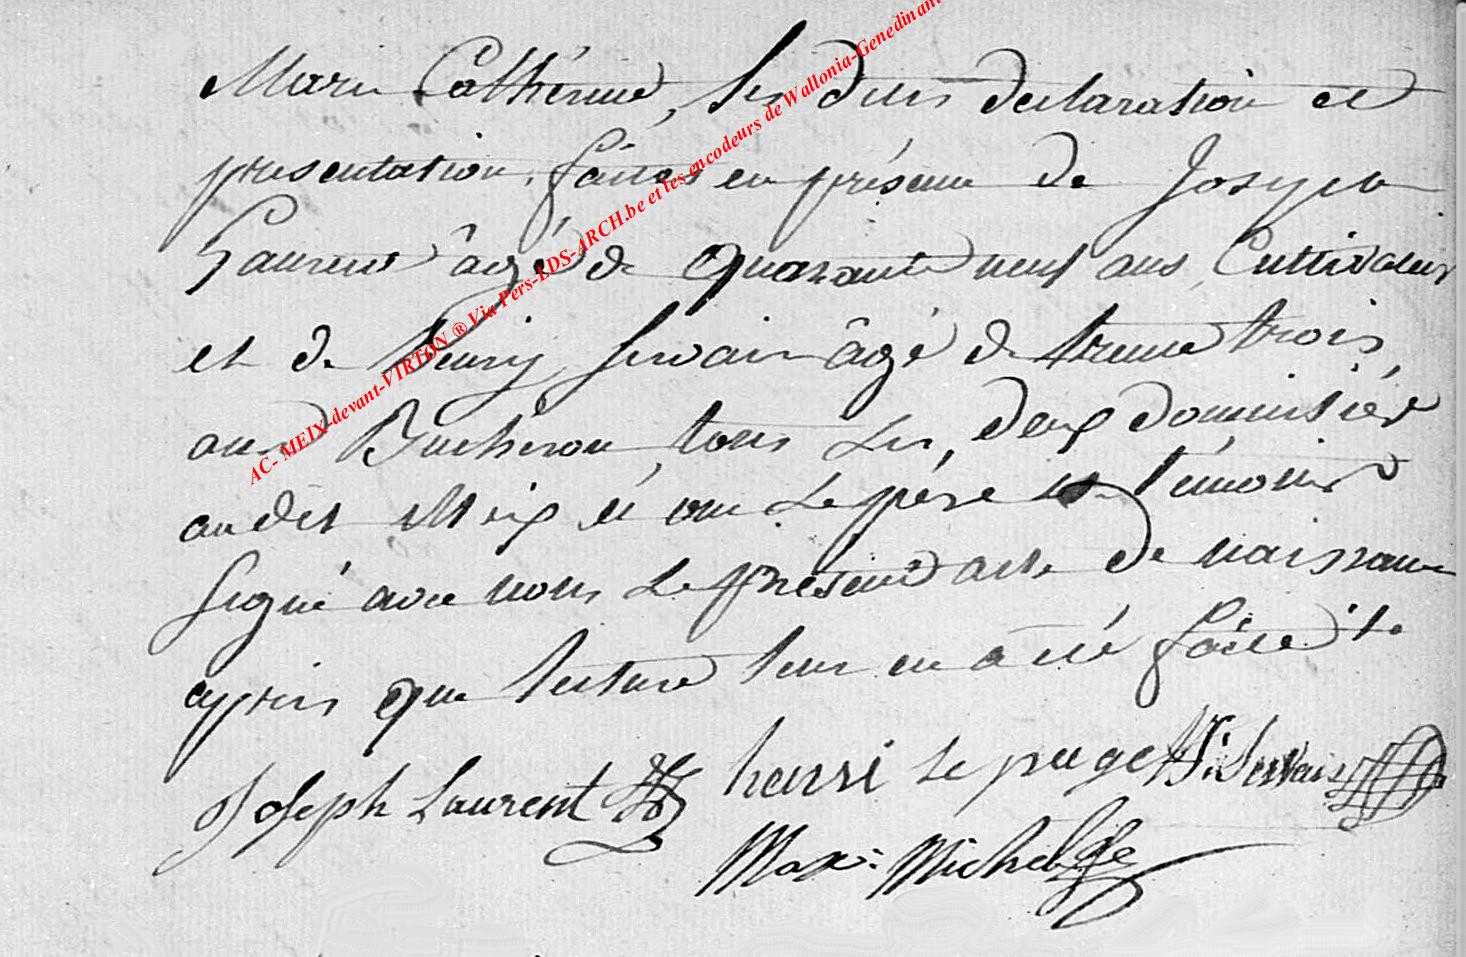 Marie Catherine, les dites declaration et
presentation, faites en présence de Joseph
Laurent âgé de quarante neuf ans, Cultivateur
et de henry servais âgé de trente trois,
ans Bucheron, tous les, deux domiciliés
audit Meix et ont le père et témoins
signé avec nous le présent acte de naissance
apries que lecture leur en a été faite
Joseph Laurent henri le page H. Servais
Max: Michel
AC- MEIX-devant-VIRTON ® Via Pers-LDS-ARCH.be et les encodeurs de Wallonia-Genedinant